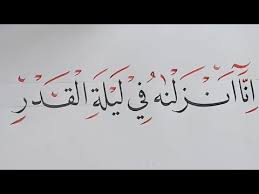 اِنَّآ اَنْزَلْنٰهُ فِيْ لَيْلَةِ الْقَدْرِ